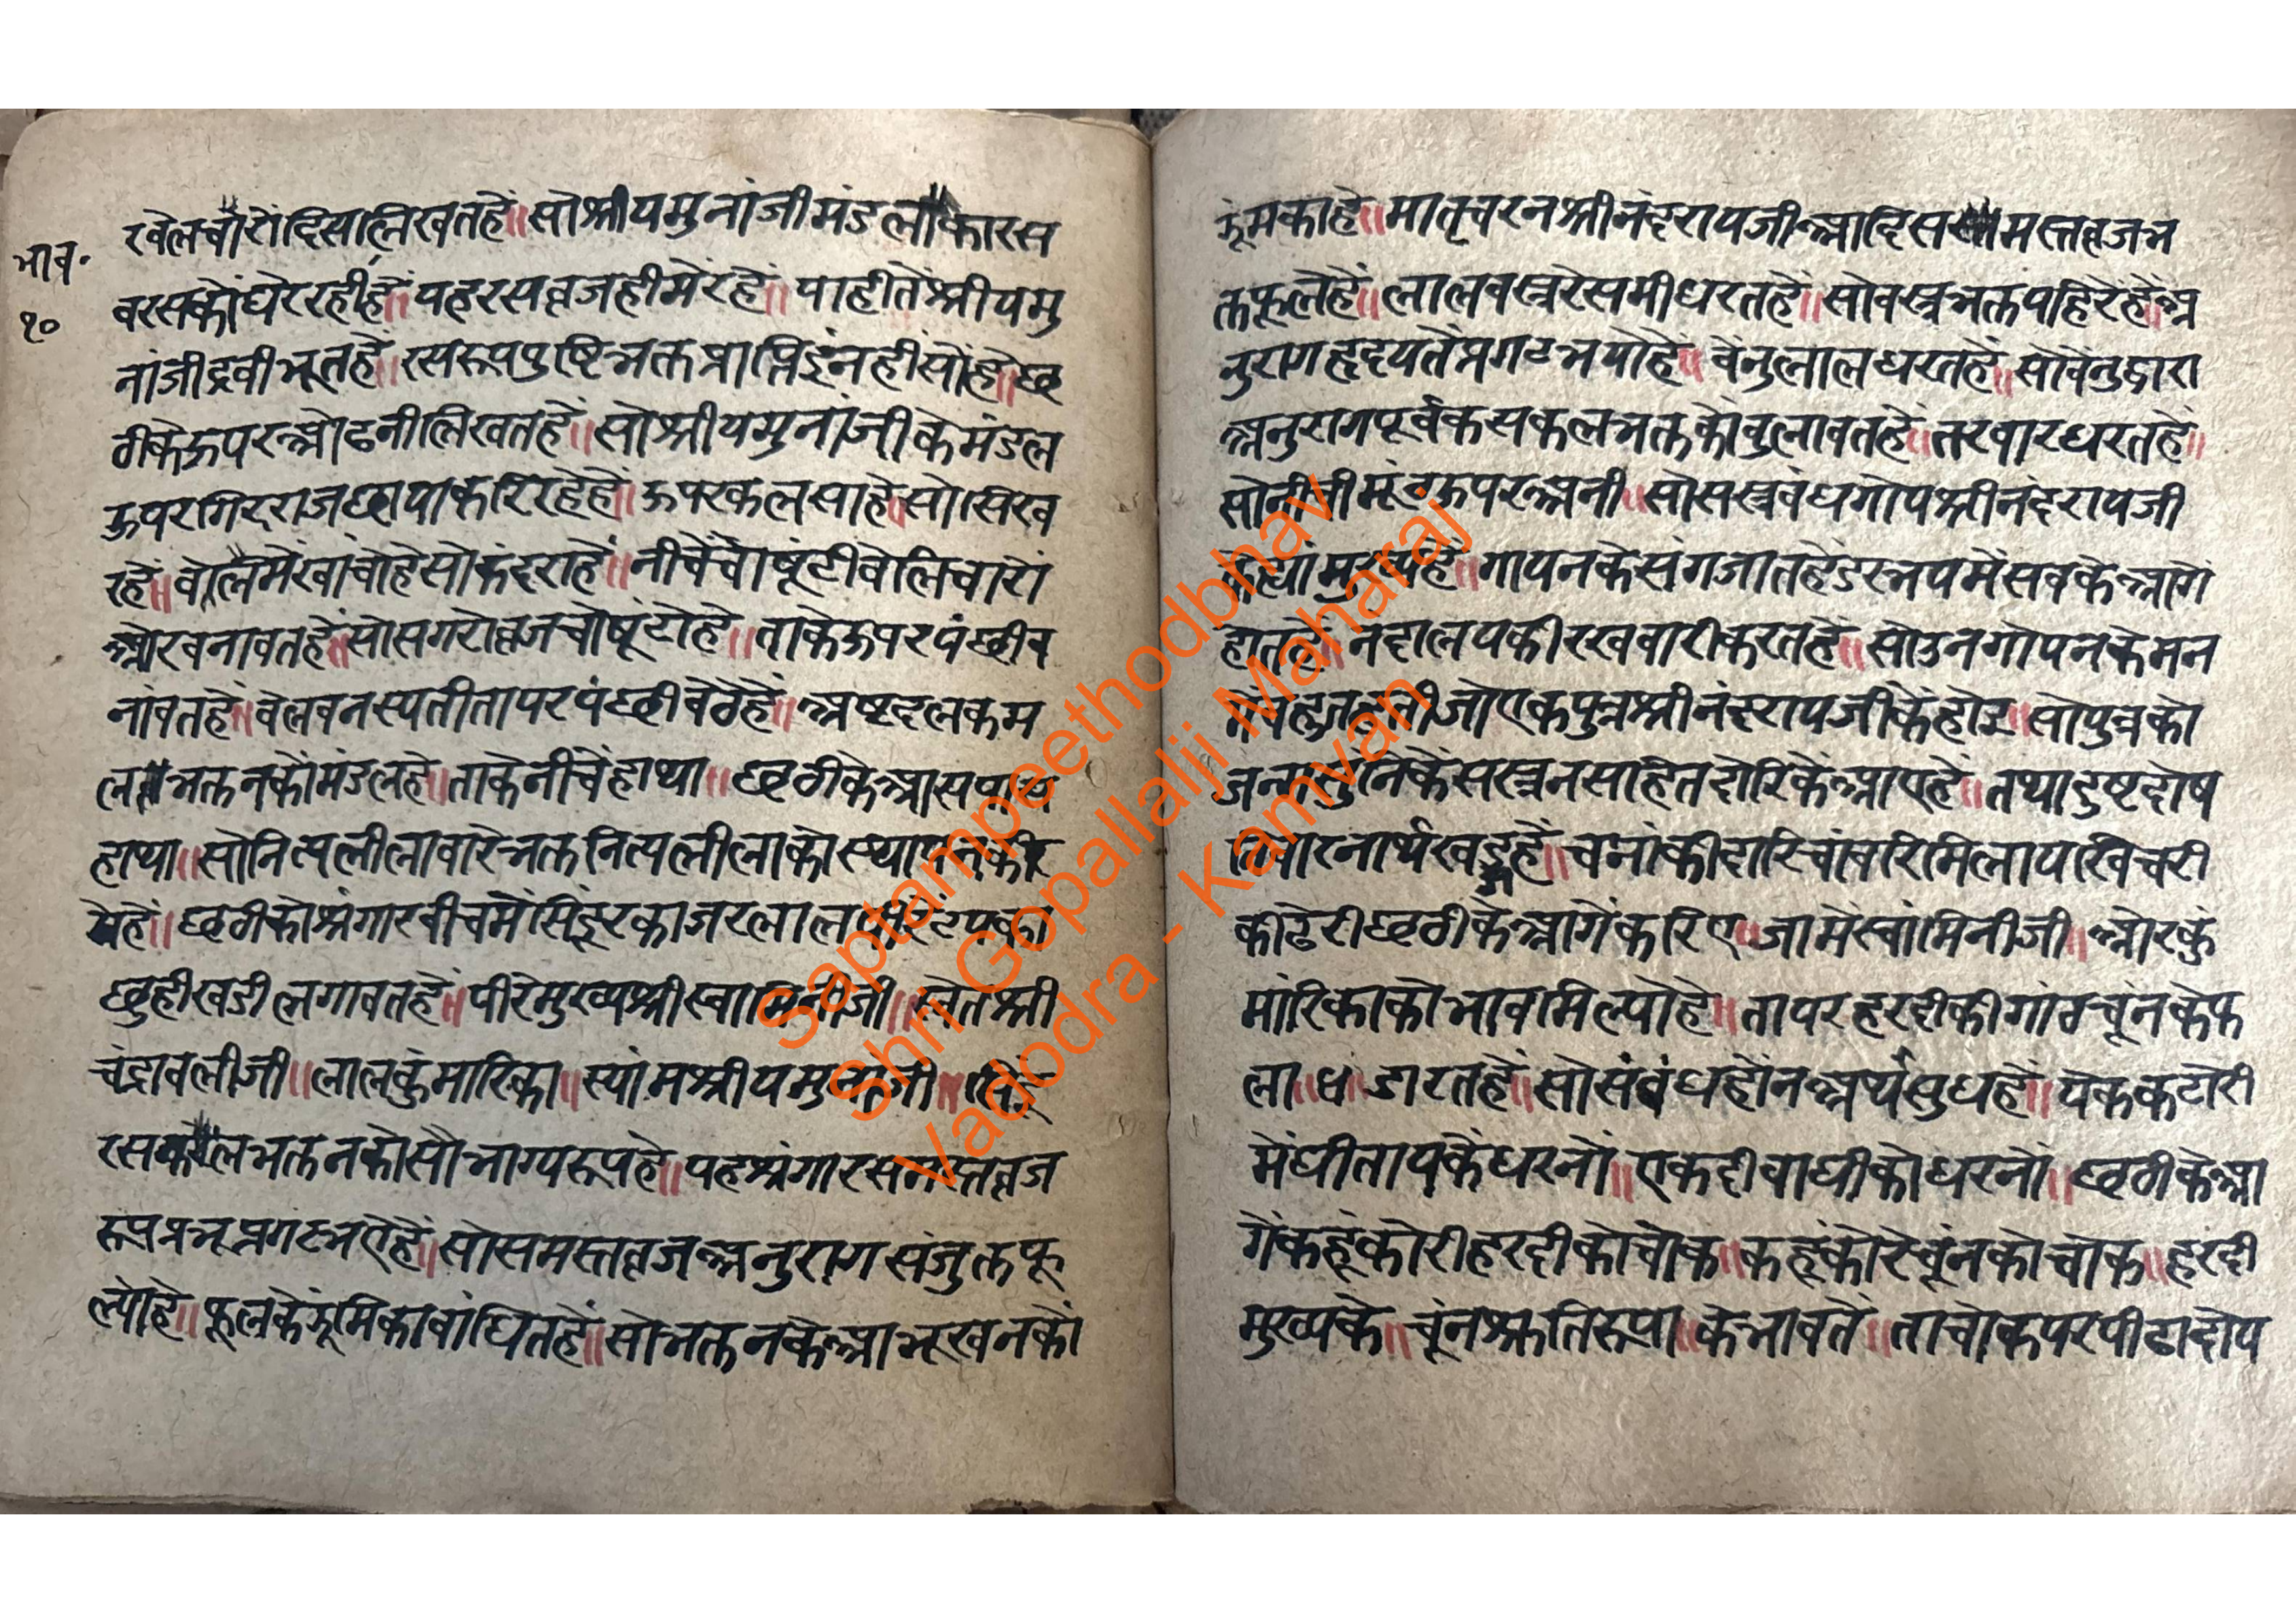 भाव॰
१०
खेलचारोंदिसालिखतहें॥सोश्रीयमुनांजीमंडलाकारस
बरसकोंघेररहीहें॥यहरसव्रजहीमेंरहें॥याहीतेंश्रीयमु
नांजीद्रवीभूतहें॥रसरूपपुष्टिभक्तप्राप्तिइंनहीसोंहे॥छ
ठीकेऊपरओढनीलिखतहें॥सोश्रीयमुनांजीकेमंडल
ऊपरगिरराजछायाकरिरहेहें॥ऊपरकलसाहें॥सोसिख
रहें॥वेलिमेंखांचोहेसोकंदराहें॥नीचेंचोषूंटीवेलिचारों
ओरबनावतहें॥सोसगरोव्रजचोषूंटोहे॥ताकेऊपरपंछीब
नांवतहें॥वेलवनस्पतीतापरपंछीबेठेहें॥अष्टदलकम
लभक्तनकोंमंडलहे॥ताकेनीचेंहाथा॥छठीकेआसपास
हाथा॥सोनित्यलीलावारेभक्तनित्यलीलाकोस्थापन
येहें॥छठीकोश्रंगारबीचमेंसिंदूरकाजरलाल
छुहीखडीलगावतहें॥पीरेमुख्यश्रीस्वामिनीजी॥स्वेतश्री
चंद्रावलीजी॥लालकुंमारिका॥स्यांमश्रीयमुनाजी॥सिंदू
रसकलभक्तनकोसौभाग्यरूपहे॥यहश्रंगारसमस्तव्रज
रूपप्रभूप्रगटभऐहें॥सोसमस्तव्रजअनुरागसंजुक्तफू
ल्योहे॥फूलकेझूमिकाबांधितहें॥सोभक्तनकेआभूखनकों
झूंमकाहे॥मातृचरनश्रीनंदरायजीआदिसमस्तव्रजभ
क्तफूलेहें॥लालवस्त्ररेसमीधरतहें॥सोवस्त्रभक्तपहिरेहें॥अ
नुरागहृदयतेंप्रगटभयोहें॥वेंनुलालधरतहें॥सोवेंनुद्वारा
अनुरागपूर्वकसकलभक्तकोंबुलावतहें॥तरवारधरतहें॥
सोनीचीमूंठऊपरअनी॥सोसस्त्रबंधगोपश्रीनंदरायजी
मुख्यहें॥गोपनकेसंगजातहेंइस्त्रपमेंसबकेआगें
होतहें॥नंदालयकीरखवारीकरतहें॥सोउनगोपनकेमन
जोएकपुत्रश्रीनंदरायजीकेंहोइ॥सोपुत्रको
जन्मसुनिकेंसस्त्रनसहितदोरिकेंआऐहें॥तथादुष्टदोष
निवारनार्थखड्गहें॥चनांकीदारिचांवरिमिलायखिचरी
कीढेरीछठीकेआगेंकरिए॥जामेंस्वांमिनीजी॥ओरकुं
मारिकाकोभावमिल्योहे॥तापरहरदीकीगांठचूंनकेफ
ला॥धाडारतहें॥सोसंबंधहोंनअर्थसुधहें॥एककटोरी
मेंघीतायकेंधरनों॥एकदीवाघीकोधरनों॥छठीकेआ
गेंकहूंकोरीहरदीकोचोक॥कहूंकोरेचूंनकोचोक॥हरदी
मुख्यके॥चूंनश्रुतिरूपा॥केभावतें॥ताचोकपरपीढादोय